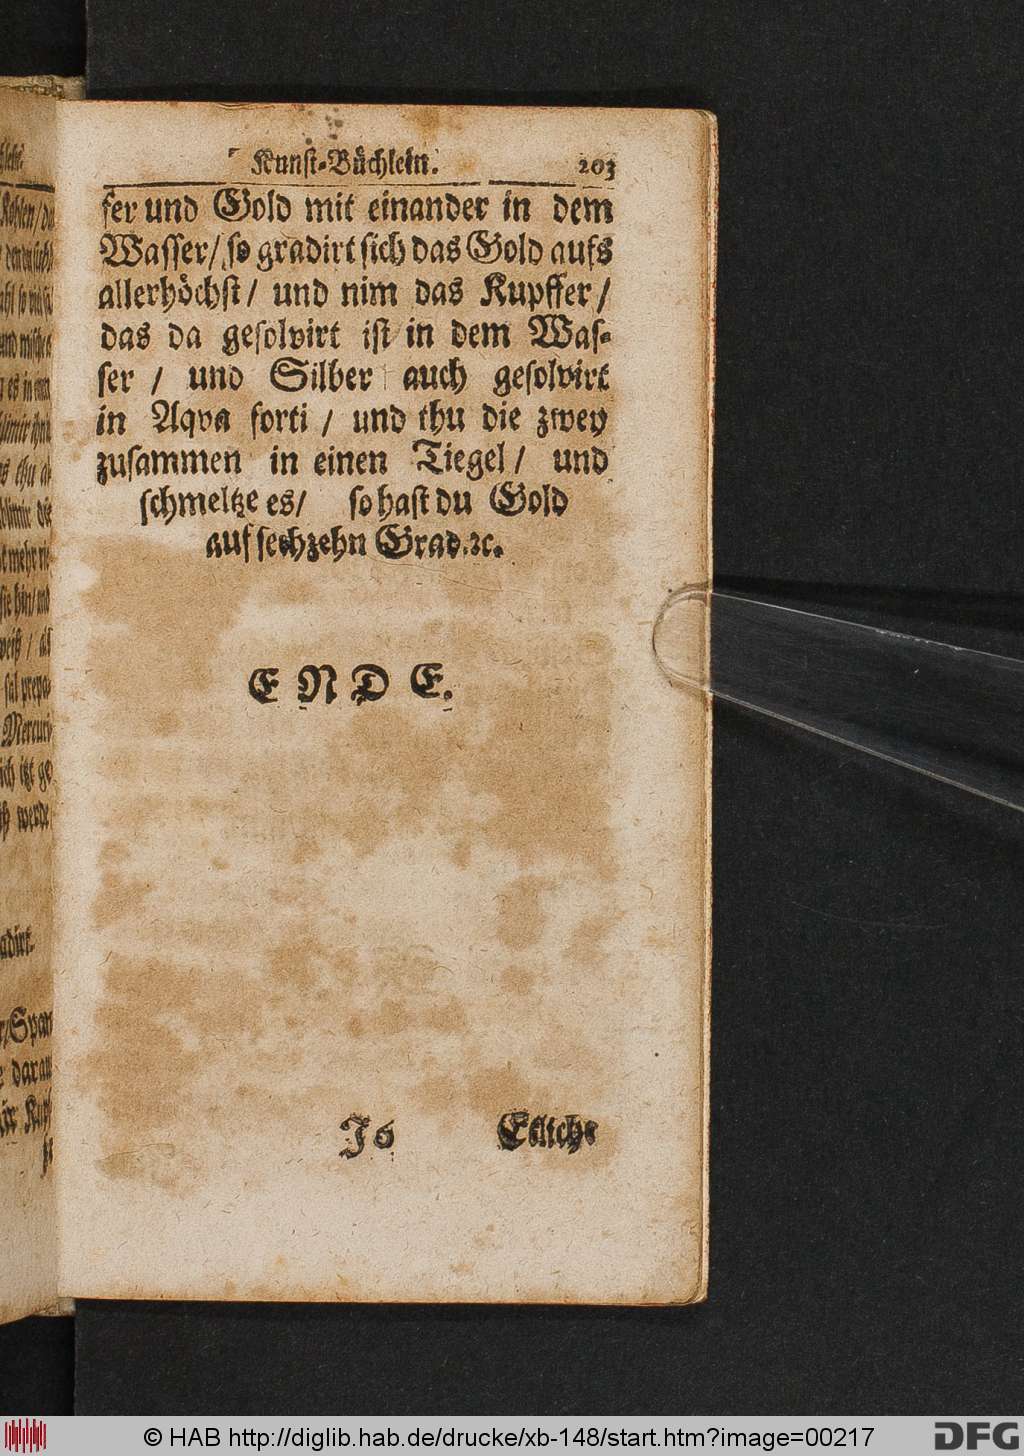 Kunst-Büchlein. 203
fer und Gold mit einander in dem
Wasser/ so gradirt sich das Gold aufs
allerhöchst/ und nim das Kupffer/
das da gesolvirt ist in dem Was-
ser / und Silber auch gesolvirt
in Aqva forti / und thu die zwey
zusammen in einen Tiegel / und
schmeltze es/ so hast du Gold
auf sechzehn Grad. ꝛc.
ENDE.
J6 Etliche
© HAB http://diglib.hab.de/drucke/xb-148/start.htm?image=00217
DFG